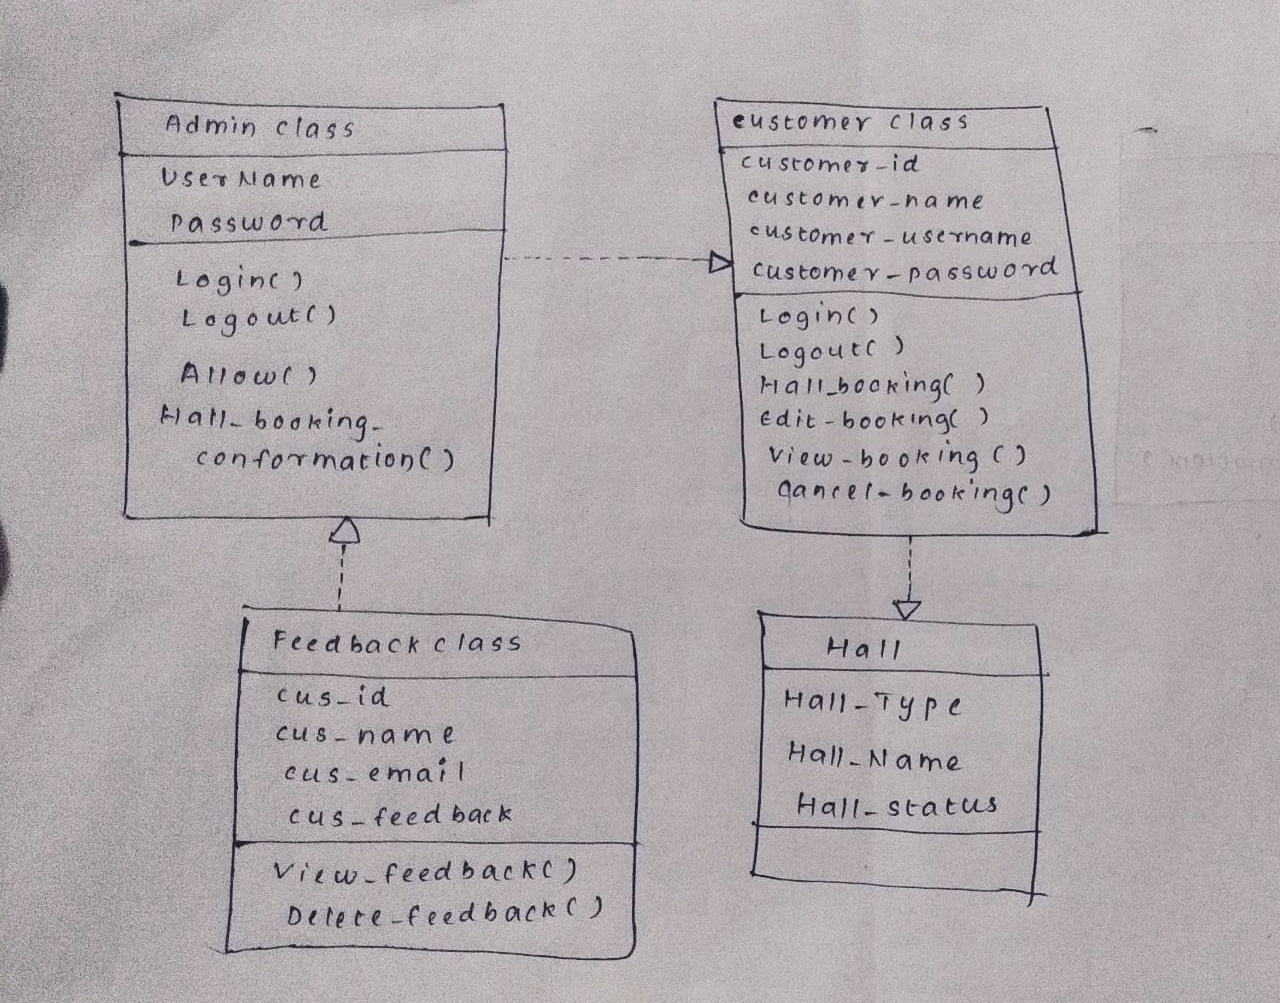 Admin class
UserName
Password
Login()
Logout()
Allow()
Hall_booking_
conformation()
customer class
customer_id
customer_name
customer_username
customer_password
Login()
Logout()
Hall_booking()
Edit_booking()
View_booking()
Cancel_booking()
Feedback class
cus_id
cus_name
cus_email
cus_feedback
View_feedback()
Delete_feedback()
Hall
Hall_Type
Hall_Name
Hall_status